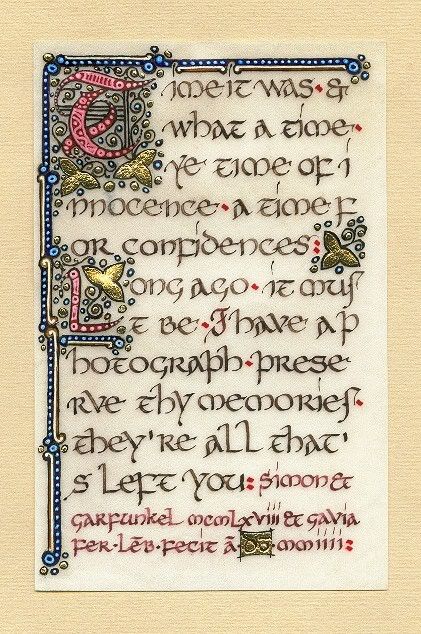 Time it was · &
what a time ·
ye time of i
nnocence · a time f
or confidences :
Long ago · it mus
t be · I have a p
hotograph · prese
rve thy memories ·
they're all that'
s left you : Simon et
Garfunkel mcmlxviii et Gavia
fer · Lēb · fecit ā mmiiii :